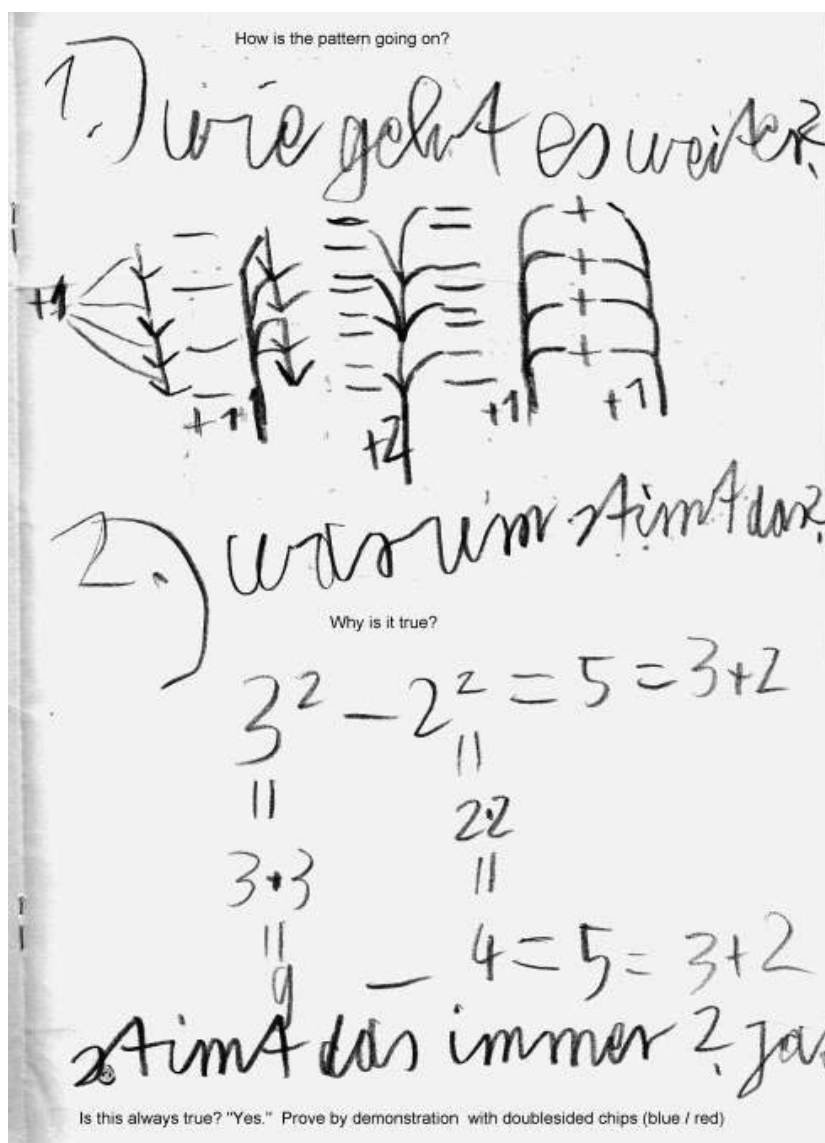 How is the pattern going on?
1.) wie geht es weiter?
+1
+1 +2 +1 +1
2.) warum stimt das?
Why is it true?
3² − 2² = 5 = 3+2
= =
3·3 2·2
= =
9 − 4 = 5 = 3+2
stimt das immer? ja.
Is this always true? "Yes."  Prove by demonstration  with doublesided chips (blue / red)